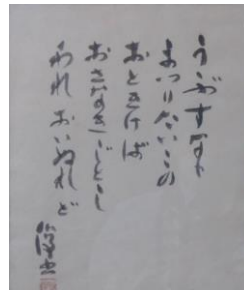 うぶすなの
まつりたいこの
おときけば
おさなきごとし
われおいぬれど